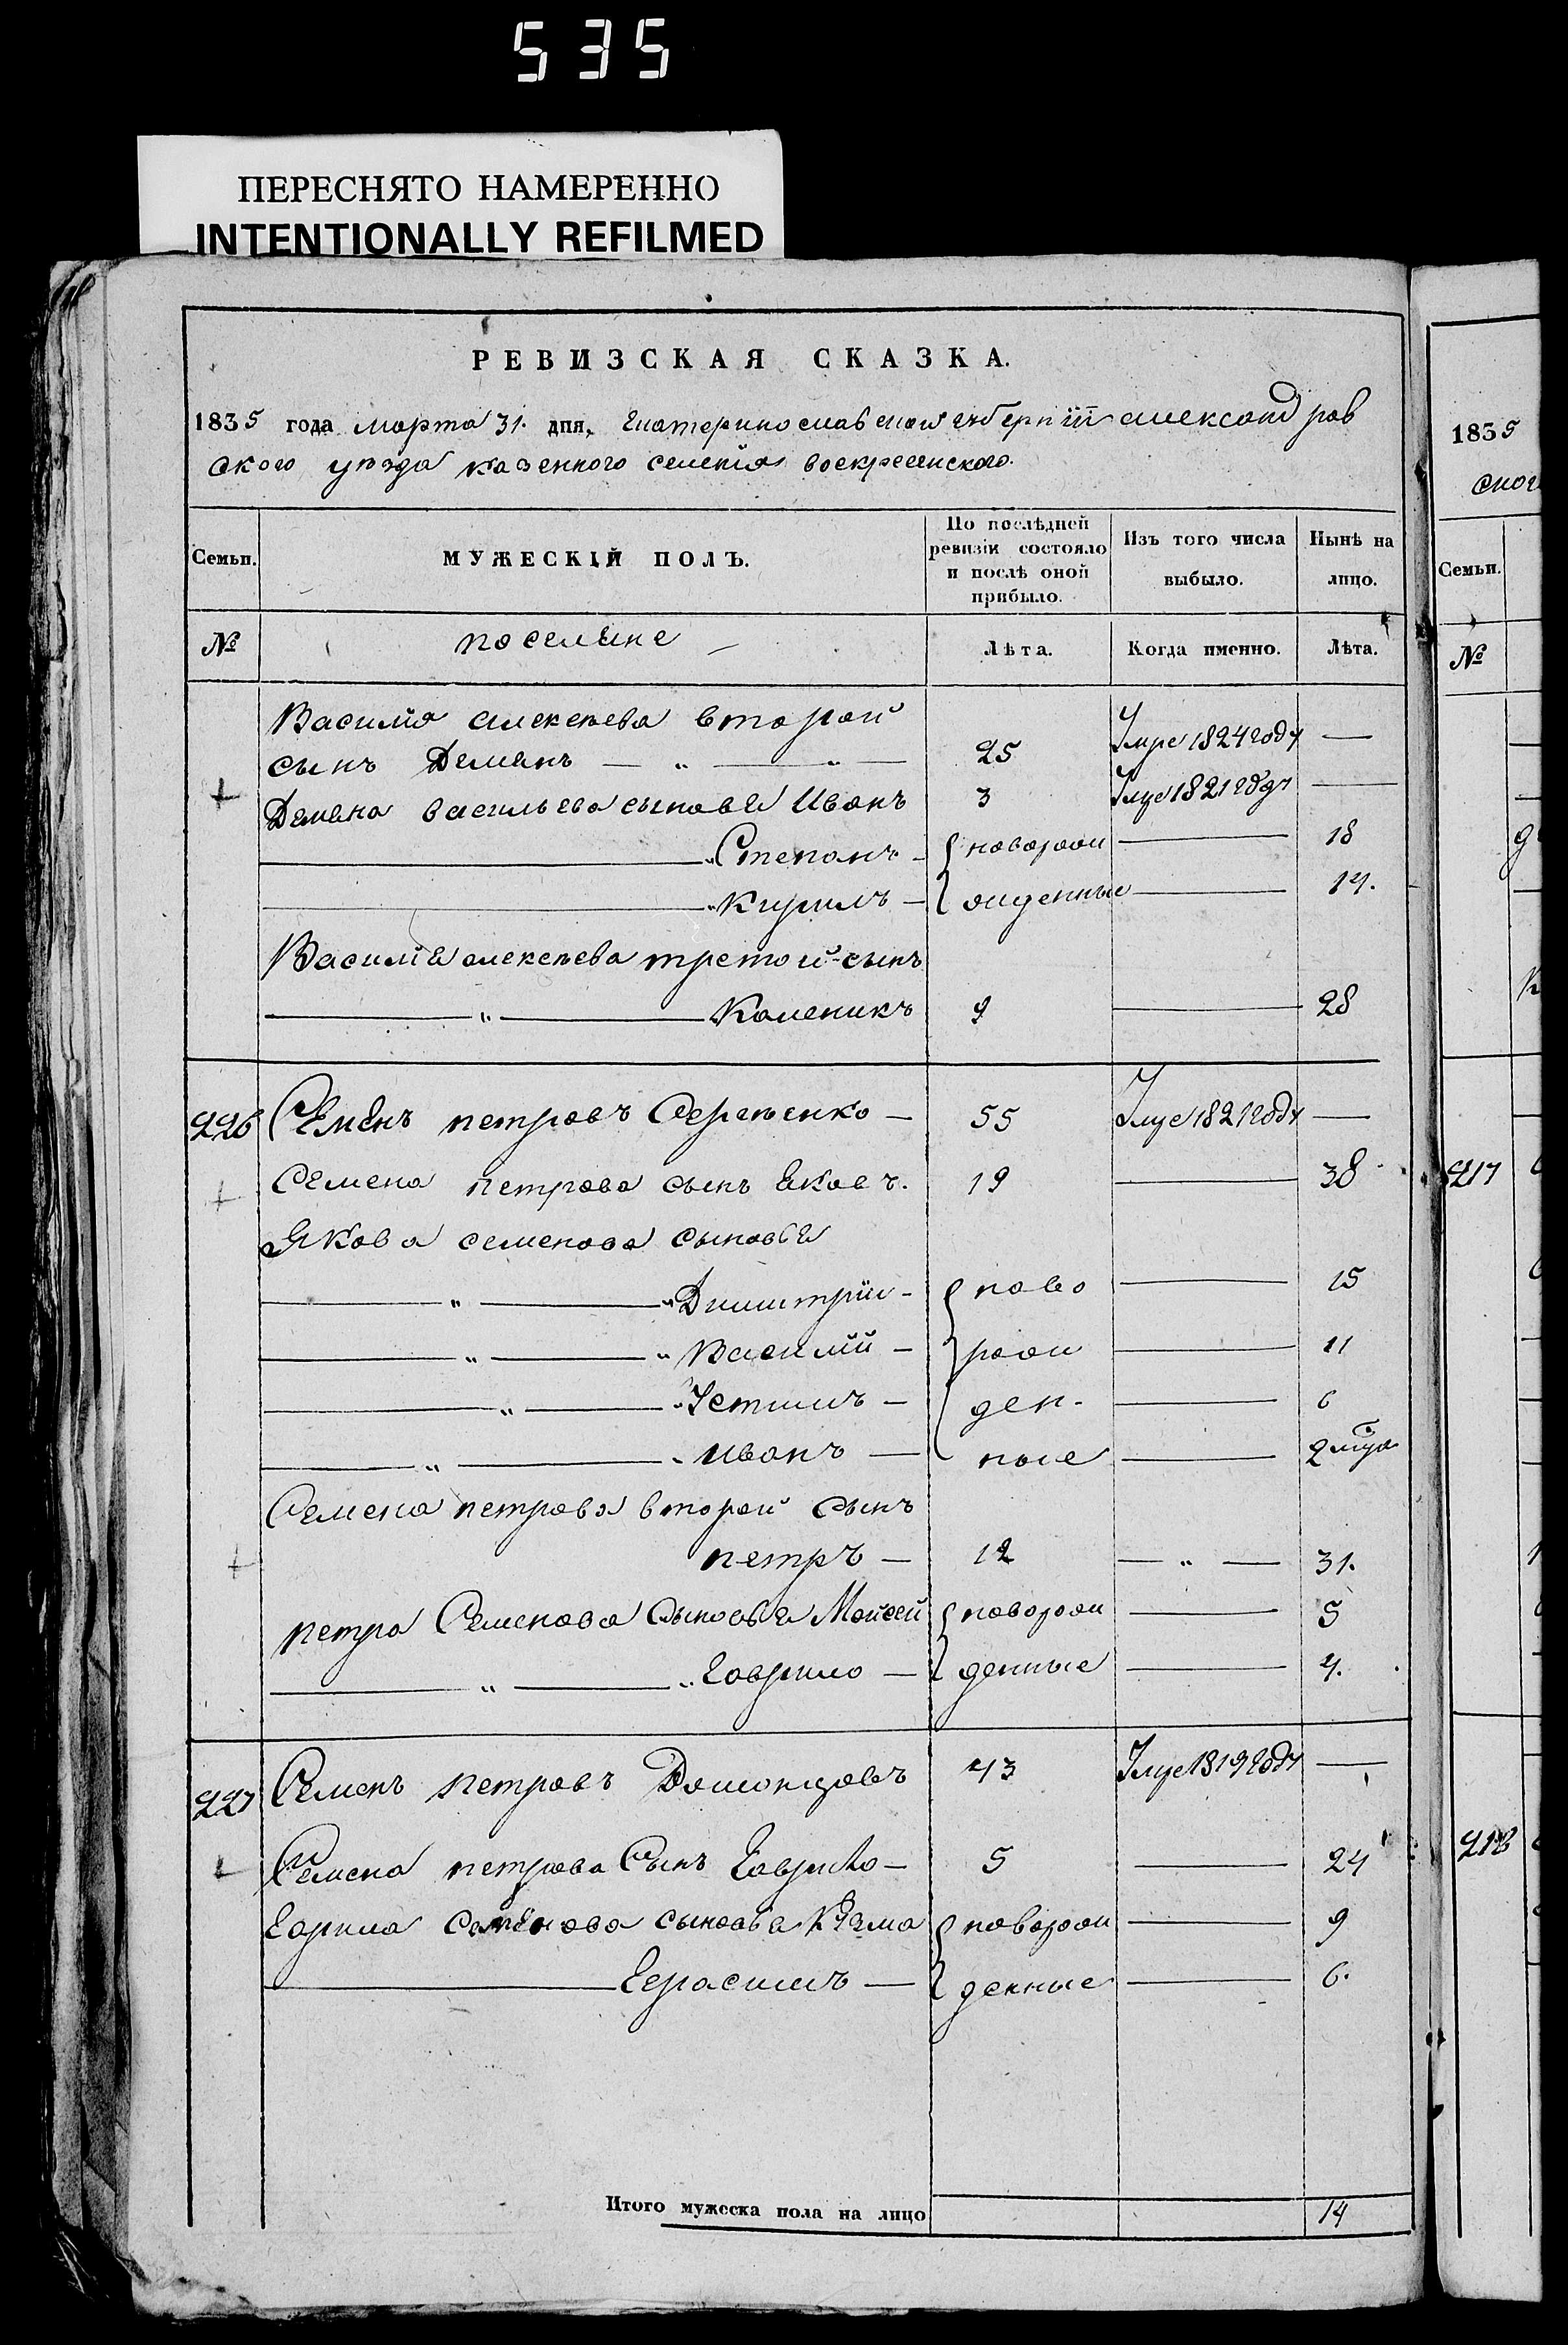 535
ПЕРЕСНЯТО НАМЕРЕННО
INTENTIONALLY REFILMED
РЕВИЗСКАЯ СКАЗКА.
1835 года марта 31. дня, Екатеринославской губернiи александров
ского уезда казенного селения воскресенского.
Семьи. МУЖЕСКІЙ ПОЛЪ. По послѣдней ревизіи состояло и послѣ оной прибыло. Изъ того числа выбыло. Нынѣ на лицо.
№ поселяне Лѣта. Когда именно. Лѣта.
Василия алексеева второй
сынъ Демянъ — „ — „ — 25 Умре 1824 году —
Демяна васильева сыновья Иванъ 3 Умре 1821 году —
„ Степанъ - новорож — 18
„ Кирилъ — жденные — 14.
Василия алексеева третой сынъ
„ Каленикъ 9 — 28
226 Семенъ петровъ Сергеенко — 55 Умре 1821 году —
Семена петрова сынъ Яковъ. 19 — 38
Якова семенова сыновья
„ „ Димитрий - ново — 15
„ „ Василий - рож — 11
„ „ Устимъ — ден- — 6
„ „ Иванъ — ные — 2 мца
Семена петрова второй сынъ
петръ — 12 — „ — 31.
петра Семенова сыновья Мойсей новорож — 5
„ „ Гаврило — денные — 4.
227 Семенъ петровъ 43 Умре 1819 году —
Семена петрова Сынъ Гаврило — 5 — 24
Гаврила Семенова сыновья новорож — 9
Герасимъ — денные — 6.
Итого мужеска пола на лицо 14
1835
ского
Семьи.
№
217
218